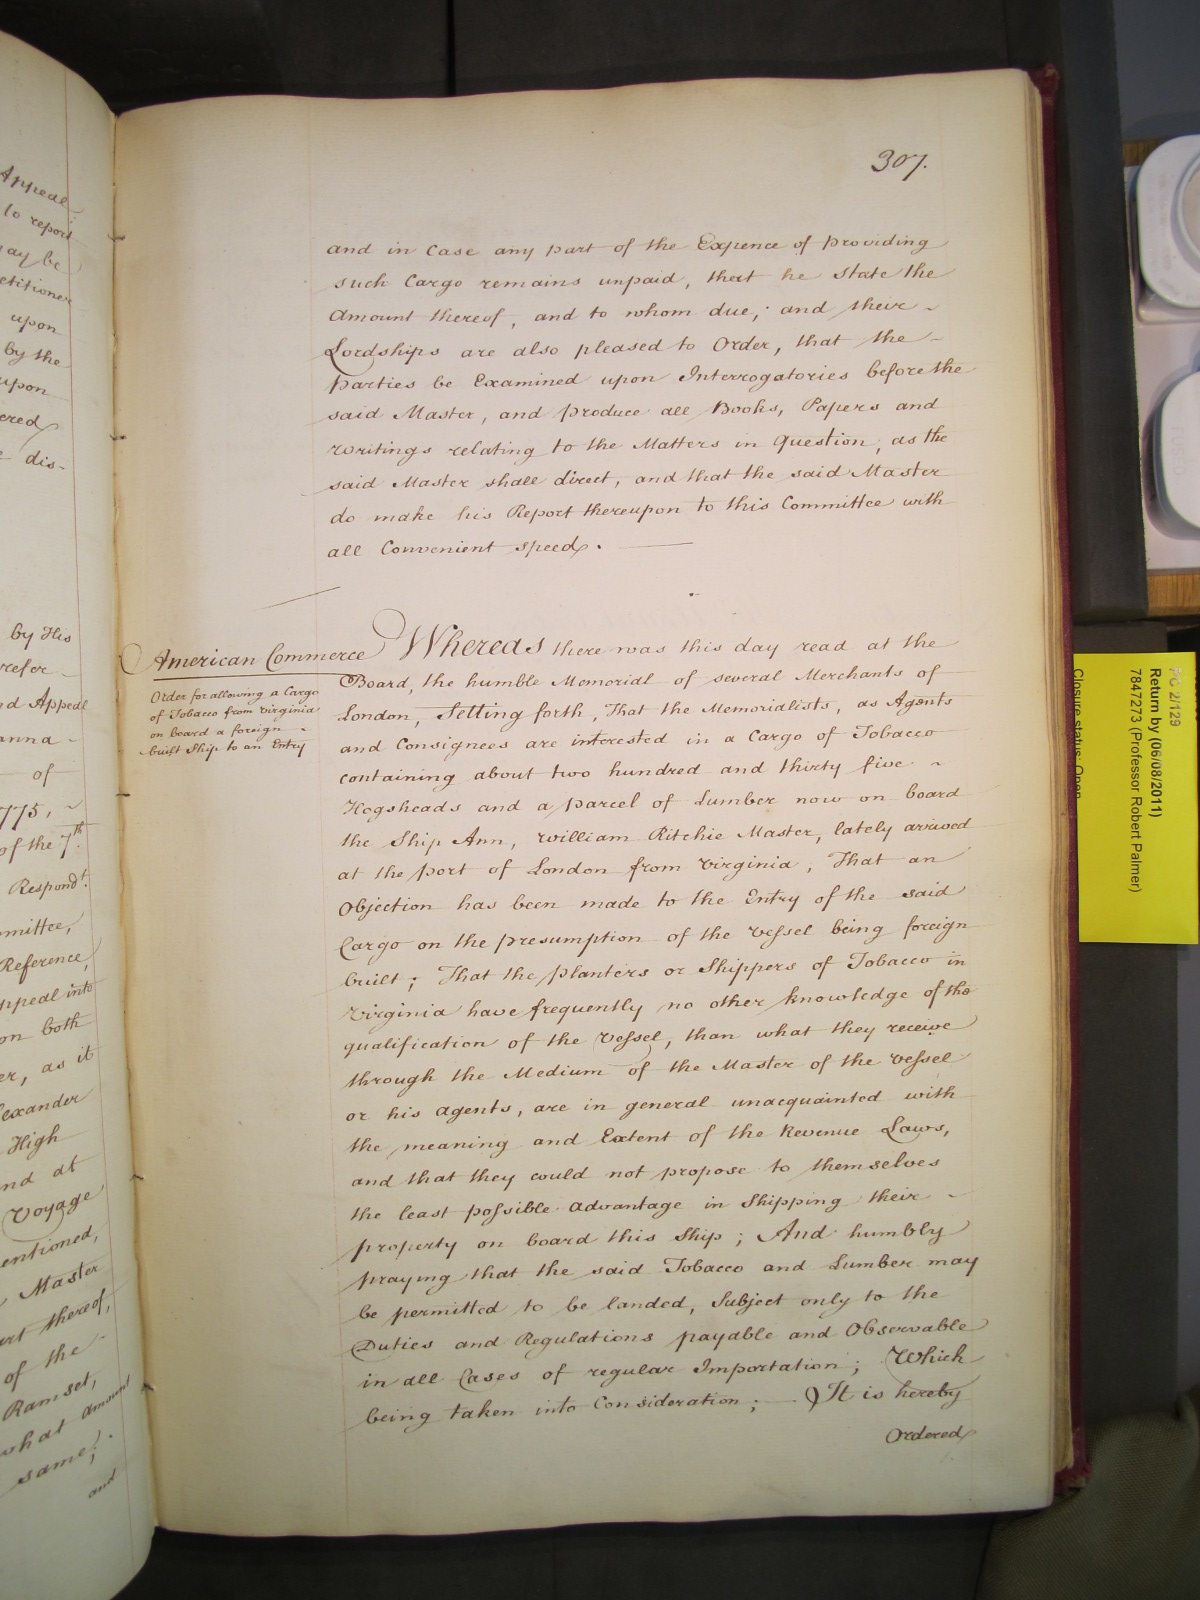 Appeal
to report
ay be
etitioner
upon
by the
upon
ered
dis-
by His
refer
nd Appeal
anna
of
775,
of the 7th
Respondt.
mmittee,
Reference,
ppeal into
on both
er, as it
lexander
High
nd at
Voyage
entioned,
Master
ert thereof,
of the
Ramset,
what amount
same;
and
307.
and in Case any part of the Expence of providing
such Cargo remains unpaid, that he State the
Amount thereof, and to whom due; and their
Lordships are also pleased to Order, that the
Parties be Examined upon Interrogatories before the
said Master, and produce all Books, Papers and
Writings relating to the Matters in Question, as the
said Master shall direct, and that the said Master
do make his Report thereupon to this Committee with
all Convenient speed.
American Commerce
Order for allowing a Cargo
of Tobacco from Virginia
on board a foreign
built Ship to an Entry
Whereas there was this day read at the
Board, the humble Memorial of several Merchants of
London, Setting forth, That the Memorialists, as Agents
and Consignees are interested in a Cargo of Tobacco
containing about two hundred and thirty five
Hogsheads and a parcel of Lumber now on board
the Ship Ann, William Ritchie Master, lately arrived
at the Port of London from Virginia, That an
Objection has been made to the Entry of the said
Cargo on the presumption of the Vessel being foreign
built; That the Planters or Shippers of Tobacco in
Virginia have frequently no other knowledge of the
qualification of the Vessel, than what they receive
through the Medium of the Master of the Vessel
or his Agents, are in general unacquainted with
the meaning and Extent of the Revenue Laws,
and that they could not propose to themselves
the least possible advantage in Shipping their
property on board this Ship; And humbly
praying that the said Tobacco and Lumber may
be permitted to be landed, Subject only to the
Duties and Regulations payable and Observable
in all Cases of regular Importation; Which
being taken into Consideration; It is hereby
Ordered
PC 2/129
Return by (06/08/2011)
7847273 (Professor Robert Palmer)
Closure status: Open